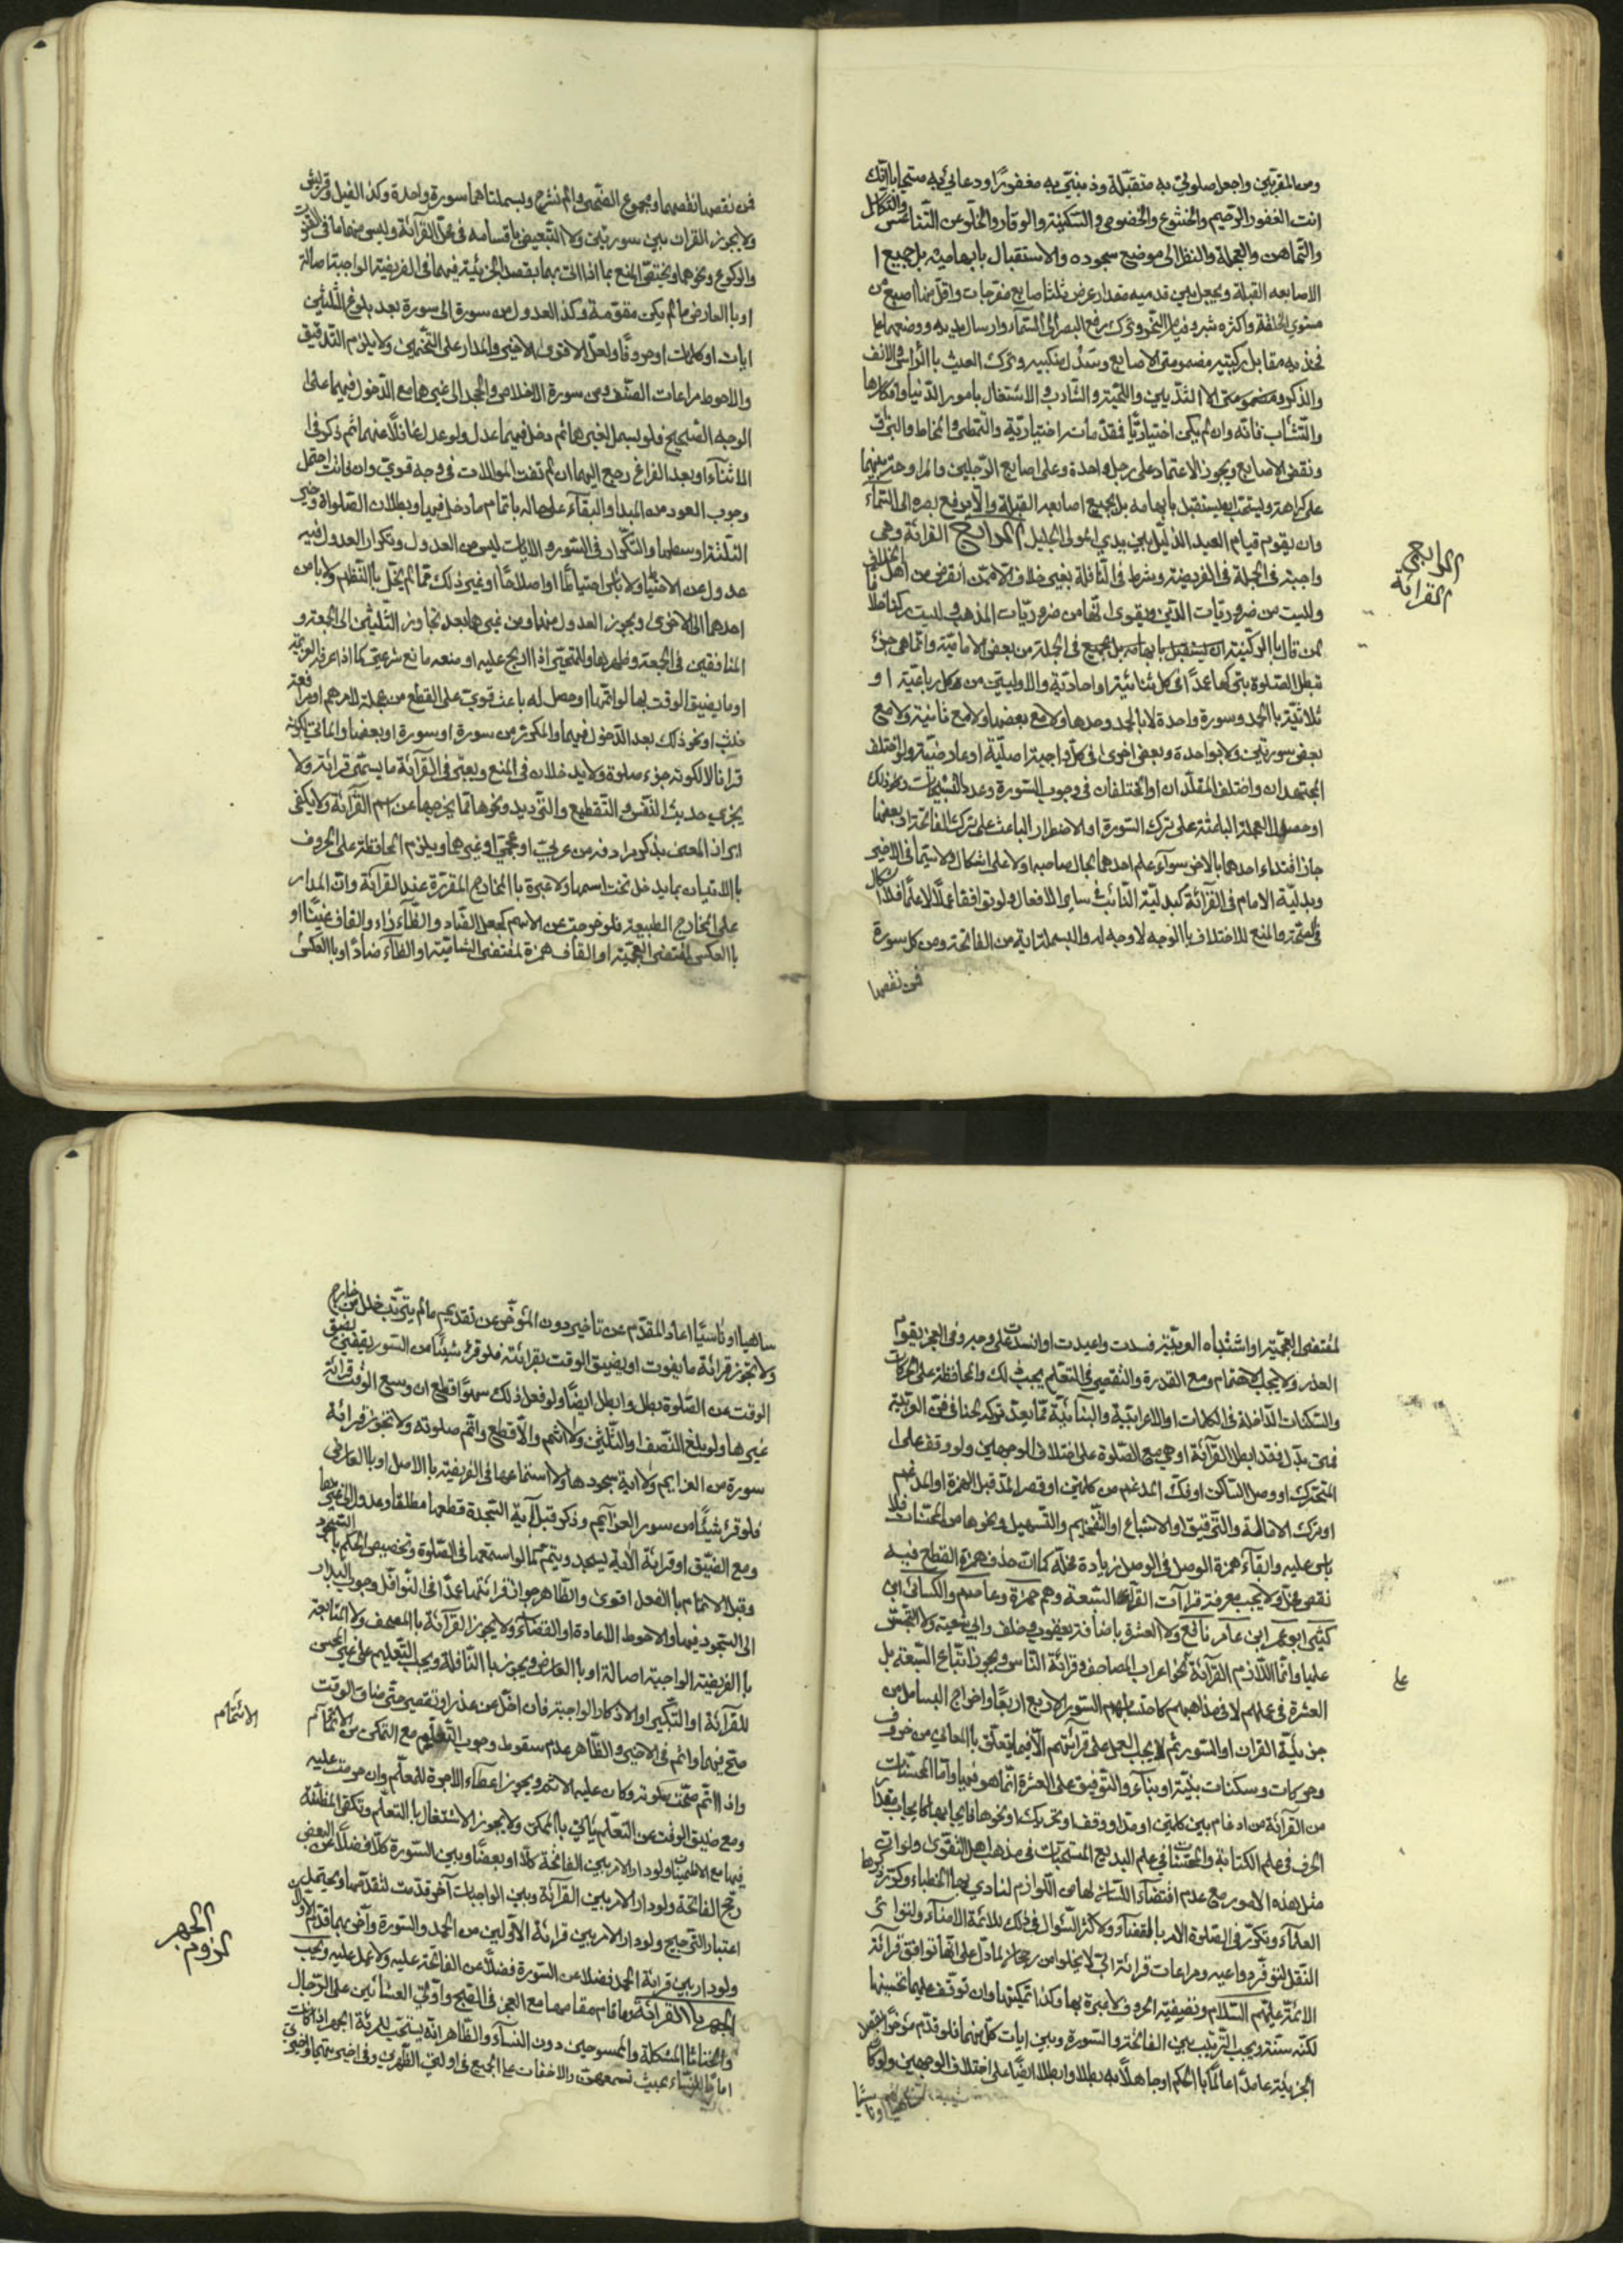 ومن المقربين واجعل صلوتي به متقبّلة وذنبي به مغفورًا ودعائي به مستجابا انّك
انت الغفور الرّحيم والخشوع والخضوع والسّكينة والوقار والخلّو عن التّناعس والتّكاسل
والتّماهن والعجلة والنظر الى موضع سجوده والاستقبال بابهاميه بل جميع ا
الاصابعه القبلة ويجعل بين قدميه مقدار عرض ثلث اصابع منفرجات واقلّ منها اصبع من
مستوي الخلقة واكثره شبر وترك رفع البصر الى السّمآء وارسال يديه ووضعهما على
فخذيه مقابل ركبتيه مضمومتي الاصابع وسدل منكبيه وترك العبث باالرّاس والانف
والاشتغال بامور الدّنيا وافكارها
والتّثأب فانّه وان لم يكن اختياريّا فمقدّماته اختياريّة والتّمطّي والمخاط والبزاق
ونقض الاصابع ويجوز الاعتماد على رجل واحدة وعلى اصابع الرّجلين
على كراهة ويستحبّ ان يستقبل بابهامه بل بجميع اصابعه القبلة ولا يرفع بصره الى السّمآء
وان يقوم قيام العبد الذّليل بين يدي المولى الجليل الرابع القرائة وهي
واجبة في الجملة في الفريضة وشرط في النّافلة بغير خلاف
وليست من ضروريّات الدّين ويقوى انّها من ضروريّات المذهب وليست ركنا خلافا
لمن قال باالركنيّة من بعض الاماميّة وانّما هي جزء
تبطل الصّلوة بتركها عمدًا في كل ثنائية او احاديّة والاوليين من كل رباعيّة او
ثلاثيّة باالحمد وسورة واحدة لا بالحمد وحدها ولا مع بعضها ولا مع ثانية ولا مع
بعض سورتين ولا بواحدة وبعض اخرى في كلّ واجبة اصليّة او عارضيّة ولو اختلف
المجتهدان واختلف المقلّدان او المختلفان في وجوب السّورة وعدد التّسبيحات ونحو ذلك
او حصل العجلة الباعثة على ترك السّورة او الاضطرار الباعث على ترك الفاتحة او بعضها
جاز اقتداء احدهما بالاخر سوآء علم احدهما بحال صاحبه اولا على اشكال ولا سيّما في الاخير
وبدليّة الامام في القرائة كبدليّة النّائب في ساير الافعال ولو توافقا عملًا لا علمًا فلا اشكال
في الصّحّة والمنع للاختلاف باالوجه لا وجه له والبسملة اية من الفاتحة ومن كل سورة
فمن نقصها
الرابع
القرائة
فمن نقصها نقصهما ومجموع الضّحى والم نشرح وبسملتاهما سورة واحدة وكذا الفيل وقريش
ولا يجوز القران بين سورتين ولا التّبعيض باقسامه في محلّ القرآئة وليس منهما ما في القنوت
والركوع ونحوهما ويختصّ المنع بما اذا اتى بهما بقصد الجزئيّة فيهما في الفريضة الواجبة اصالة
او باالعارض ما لم يكن مقوّمة وكذا العدول من سورة الى سورة بعد بلوغ الثّلثين
ايات او كلمات او حروفًا ولعلّ الاقوى الاخير والمدار على التّخمين ولا يلزم التّدقيق
والاحوط مراعات النّصف ومن سورة الاخلاص والجحد الى غيرهما مع الدّخول فيهما على
الوجه الصّحيح فلو بسمل لغيرهما ثم دخل فيهما عدل ولو عدل غافلًا عنهما ثم ذكر في ا
الاثنآء او بعد الفراغ رجع اليهما ان لم تفت الموالات في وجه قويّ وان فاتت احتمل
وجوب العود من المبدأ والبقآء على حاله باتمام ما دخل فيه وبطلان الصّلواة وخير
الثّلثة اوسطها والتّكرار في السّور والايات ليس من العدول وتكرار العدول فيه
عدول عن الاختيار ولا باس احتياطًا او اصلاحًا او غير ذلك ممّا لم يخلّ باالنّظم ولا باس
احدهما الى الاخرى ويجوز العدول منهما ومن غيرهما بعد تجاوز الثّلثين الى الجمعة و
المنافقين في الجمعة وظهرها
او ما يضيق الوقت بها لو اتمّها او حصل له باعث قويّ على القطع من عجلة لامر مهمّ او مرافعة
او نحو ذلك بعد الدّخول فيهما والمكرّر من سورة او سورة او بعضها
قرانا لا لكونه جزء صلوة ولا يدخلان في المنع ويعتبر في القرآئة ما يسمّى قرائة ولا
يجزي حديث النّفس والتّقطيع والتّرديد ونحوها ممّا يخرجها عن اسم القرآئة ولا يكفي
ابراز المعنى بذكر مرادفه من عربيّ او عجميّ او غيرها ويلزم المحافظة على الحروف
باالاتيان بما يدخل تحت اسمها ولا عبرة باالمخارج المقرّرة عند القرّآء وانّ المدار
على المخارج الطبيعة فلو خرجت عن الاسم كجعل الضّاد والظّآء زاء والقاف غينًا او
باالعكس لمقتضى العجميّة او القاف همزة لمقتضى الشّاميّة او الظّآء ضادًا وباالعكس
لمقتضى العجميّة او اشتباه العربيّة فسدت واعيدت او انسدّت على وجه وفي العجز يقوم
العذر ولا يجب الاحتمام ومع القدرة والتّقصير في التعلّم يجب ذلك والمحافظة على الحركات
والسّكنات الدّاخلة في الكلمات او الاعرابيّة والبنائيّة ممّا يعدّ تركه لحنا في فنّ العربيّة
فمن بدّل فقد ابطل القرآئة او هي مع الصّلوة على اختلاف الوجهين ولو وقف على ا
المتحرك او وصل السّاكن او فكّ المدغم من كلمتين او قصر المدّ قبل الهمزة او المدغم
او ترك الامالة والتّرقيق او الاشباع او التّفخيم والتّسهيل ونحوها من المحسّنات فلا
باس عليه وابقآء همزة الوصل في الوصل زيادة مخلّة كما انّ حذف همزة القطع فيه
نقص مخلّ ولا يجب معرفة قرآآت القرّآء السّبعة وهم حمزة وعاصم والكسائي ابن
كثير ابو عمر ابن عامر نافع ولا العشرة باضافة يعقوب وخلف وابي شعبة ولا التّجسّس
عليها وانّما اللّازم القرآئة بنحو اعراب المصاحف وقرائة النّاس ويجوز اتّباع السّبعة بل
العشرة في عملهم لا في مذاهبهم كاحتسابهم السّور الاربع اربعًا واخراج البسامل من
جزئيّة القران او السّور ثم لا يجب العمل على قرآئتهم الّا فيما يتعلّق باالمعاني من حروف
وحركات وسكنات بنيّة او بنآء والتّوقيف على العشرة انّما هو فيها وامّا المحسّنات
من القرآئة من ادغام بين كلمتين او مدّ او وقف او تحريك او نحوها فايجابها كايجاب مقدار
الحرف في علم الكتابة والمحسّنات في علم البديع المستحبّات في مذهب اهل التّقوى ولو انّ
مثل هذه الامور مع عدم اقتضآء اللّسان لها من اللّوازم لنادي بها الخطباء وكرّر ذكرها
العلمآء وتكرّر في الصّلوة الامر بالقضآء ولاكثر السّؤال في ذلك للائمّة الامنآء ولتواتر
النّقل لتوفّر دواعيه ومراعات قرائة ابيّ لا يخلوا من رجحان لما دلّ على انّها توافق قرآئة
الائمّة عليهم السّلام وتضيفة الحروف لا عبرة بها وكذا تمكينها وان توقّف عليها تحسينها
لكنّه سنّة ويجب التّرتيب بين الفاتحة والسّورة وبين ايات كلّ منهما فلو قدّم مؤخّرا بقصد
الجزئيّة عامدًا عالمًا باالحكم او جاهلًا به بطلا وابطلا ايضًا على اختلاف الوجهين ولو كان
ساهيا او ناسيا
على
ساهيا او ناسيًا اعاد المقدّم عن تأخير دون المؤخّر عن تقديم ما لم يترتّب خلل من خارج
ولا تجوز قرائة ما يفوت او يضيق الوقت بقرائته فلو قرء شيئًا من السّور يقتضي تضيق
الوقت عن الصّلوة بطل وابطل ايضًا ولو فعل ذلك سهوًا قطع ان وسع الوقت قرائة
غيرها ولو بلغ النّصف او الثّلثين ولا اثم والّا قطع واتمّ صلوته ولا تجوز قرائة
سورة من العزايم ولا اية سجودها ولا استماعها في الفريضة باالاصل او باالعارض
فلو قرء شيئًا من سور العزآيم وذكر قبل آية السّجدة قطعها مطلقا وعدل الى غيرها
ومع الضّيق او قرائة الاية يسجد ويتمّ كما لو استمعها في الصّلوة وتخصيص الحكم
وقبل الاتمام باالفعل اقوى والظّاهر جواز قرائتها عمدًا في النّوافل ووجوب البدار
الى السّجود فيها والاحوط الاعادة او القضآء ولا يجوز القرآئة باالمصحف ولا المتابعة
باالفريضة الواجبة اصالة او باالعارض ويجوز باالنّافلة ويجب التّعليم على غير المحسن
للقرآئة او التّكبير او الاذكار الواجبة فان اخلّ من عذر او تقصير حتّى ضاق الوقت
صحّ فيهما واثم في الاخير والظّاهر عدم سقوط وجوب التّعلّم مع التّمكن من الائتمام
واذا ائتمّ صحّت صلوته وكان عليه الاثم ويجوز اعطآء الاجرة للمعلّم وان حرمت عليه
ومع ضيق الوقت عن التّعلّم يأتي باالممكن ولا يجوز الاشتغال باالتعلّم وتكفي المظنّة
فيها مع الاطمينان ولو دار الامر بين الفاتحة كلًا او بعضًا وبين السّورة كلًا فضلًا عن البعض
رجّح الفاتحة ولو دار الامر بين القرآئة وبين الواجبات آخر قدّمت لتقدّمها ويحتمل
اعتبار التّرجيح ولو دار الامر بين قرائة الاوّلين من الحمد والسّورة وآخر بهما قدّم الاوّلان
ولو دار بين قرائة الحمد فضلًا عن السّورة فضلًا عن الفاتحة عليه ولا عمل عليه ويجب
الجهر باالقرائة وما قام مقامها مع العجز في الصّبح واولتي العشائين على الرّجال
والخناثا المشكلة والممسوحين دون النّسآء والظّاهر انّه يستحبّ للمرئة الجهر اذا كانت
امامًا للنّساء بحيث تسمعهنّ والاخفات على الجميع في اولتي الظّهرين وفي اخيرتيهما واخيرتي
الائتمام
الجهر
لزوم